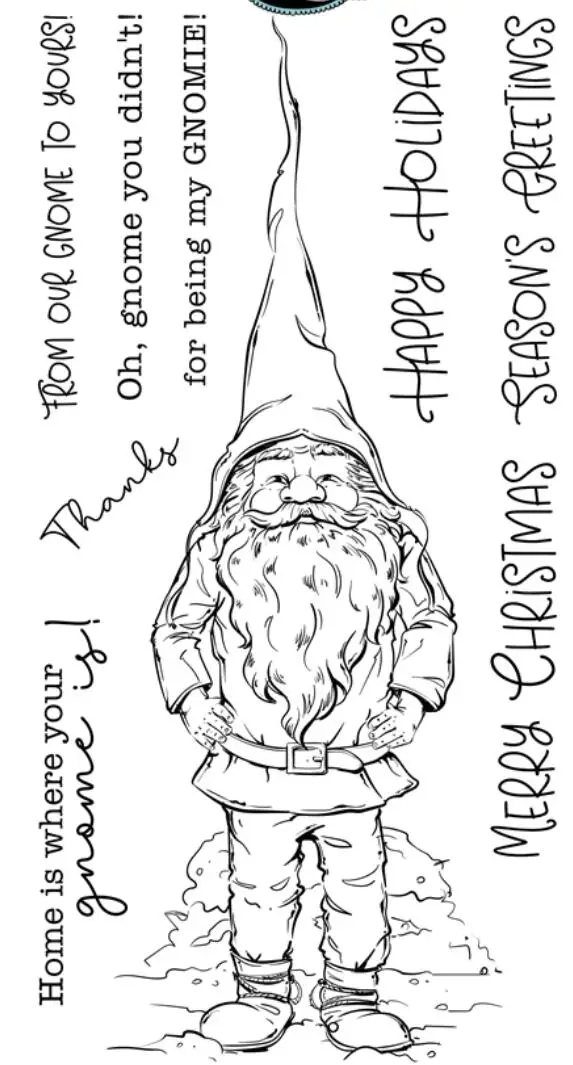 FROM OUR GNOME TO YOURS!
Oh, gnome you didn't!
for being my GNOMIE!
Thanks
Home is where your
gnome is!
HAPPY HOLIDAYS
SEASON'S GREETINGS
MERRY CHRISTMAS